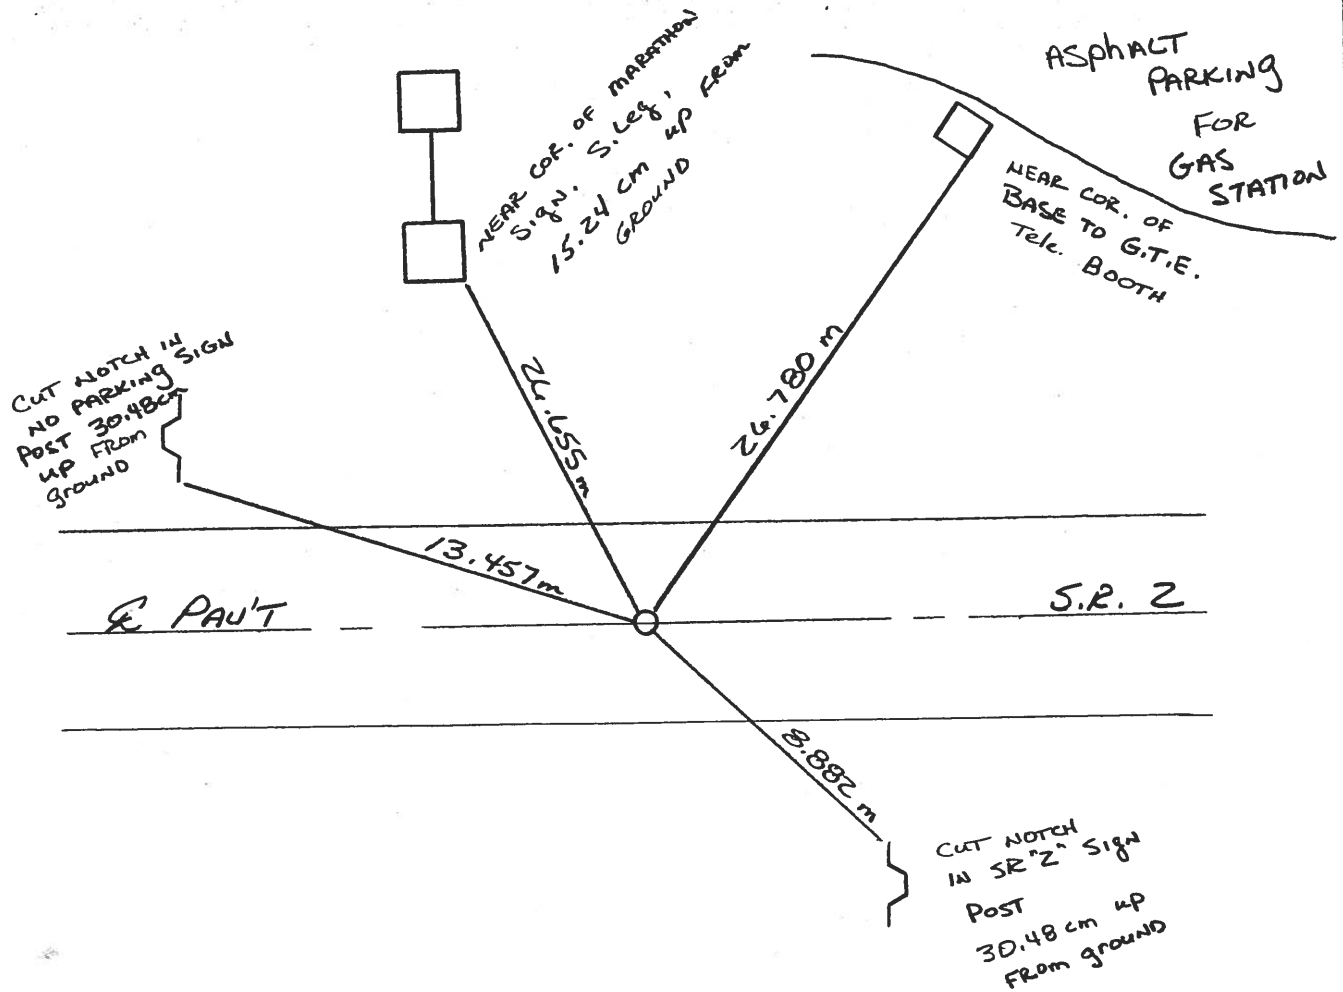 NEAR COR. OF MARATHON
SIGN. S. Leg,
15.24 cm up FROM
GROUND
ASPHALT
PARKING
FOR
GAS
STATION
NEAR COR. OF
BASE TO G.T.E.
Tele. BOOTH
CUT NOTCH IN
NO PARKING SIGN
POST 30.48cm
up FROM
ground
26.655 m
26.780 m
13.457 m
℄ PAV'T
S.R. 2
8.882 m
CUT NOTCH
IN SR "2" SIgN
POST
30.48 cm up
FROM grouND